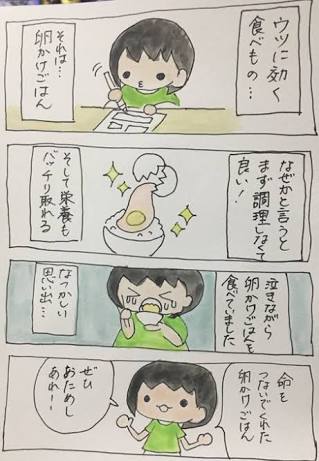 ウツに効く
食べもの…
それは…
卵かけごはん
なぜかと言うと
まず調理しなくて
良い！
そして栄養も
バッチリ取れる
泣きながら
卵かけごはんを
食べていました
なつかしい
思い出…
命を
つないでくれた
卵かけごはん
ぜひ
おためし
あれー！